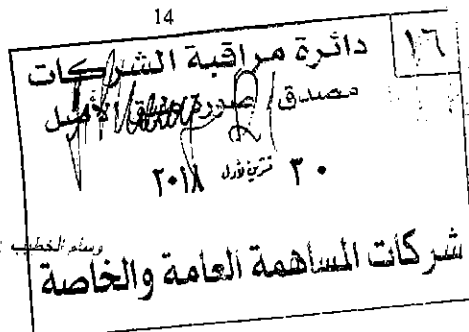 14
١٦
دائرة مراقبة الشركات
مصدق / صورة طبق الأصل
٣٠ تشرين أول ٢٠١٨
وسام الخطيب
شركات المساهمة العامة والخاصة